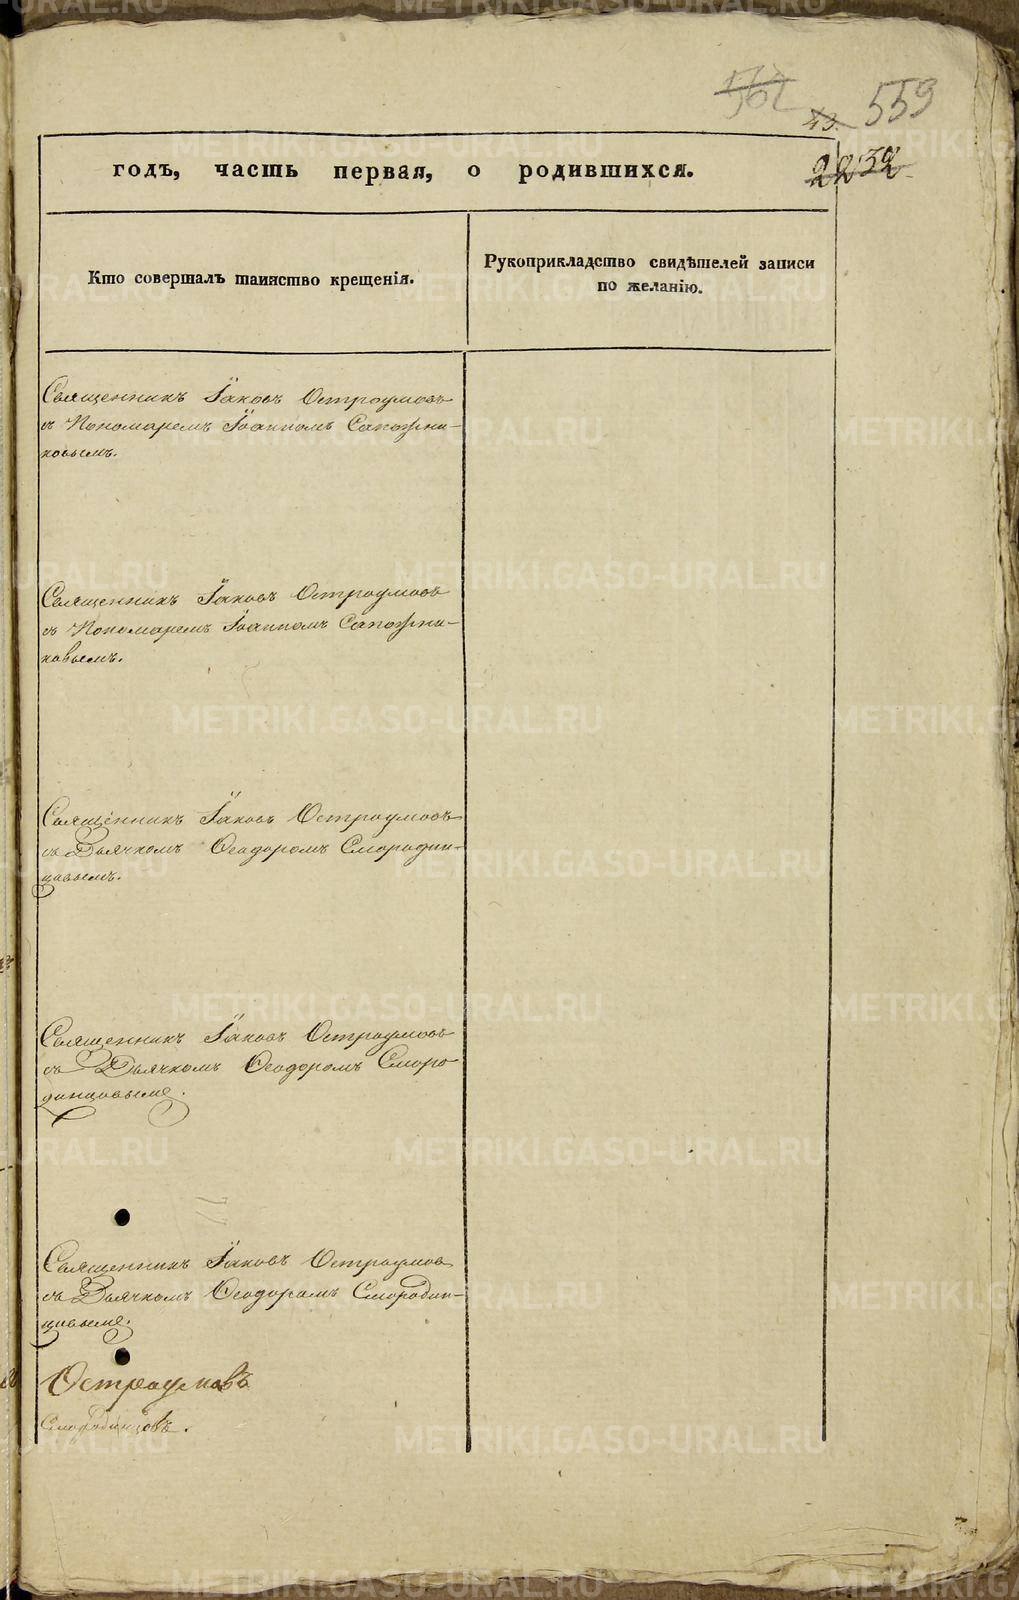 562
43.
559
2232
годъ, часть первая, о родившихся.
Кто совершалъ таинство крещенія.
Рукоприкладство свидѣтелей записи
по желанію.
Священникъ Іаковъ Остроумовъ
съ Пономаремъ Іоанномъ Сапожни-
ковымъ.
Священникъ Іаковъ Остроумовъ
съ Пономаремъ Іоанномъ Сапожни-
ковымъ.
Священникъ Іаковъ Остроумовъ
съ Дьячкомъ Ѳеодоромъ Смородин-
цовымъ.
Священникъ Іаковъ Остроумовъ
съ Дьячкомъ Ѳеодоромъ Сморо
динцовымъ.
Священникъ Іаковъ Остроумовъ
съ Дьячкомъ Ѳеодоромъ Смородин-
цовымъ.
Остроумовъ
Смородинцовъ.
METRIKI.GASO-URAL.RU